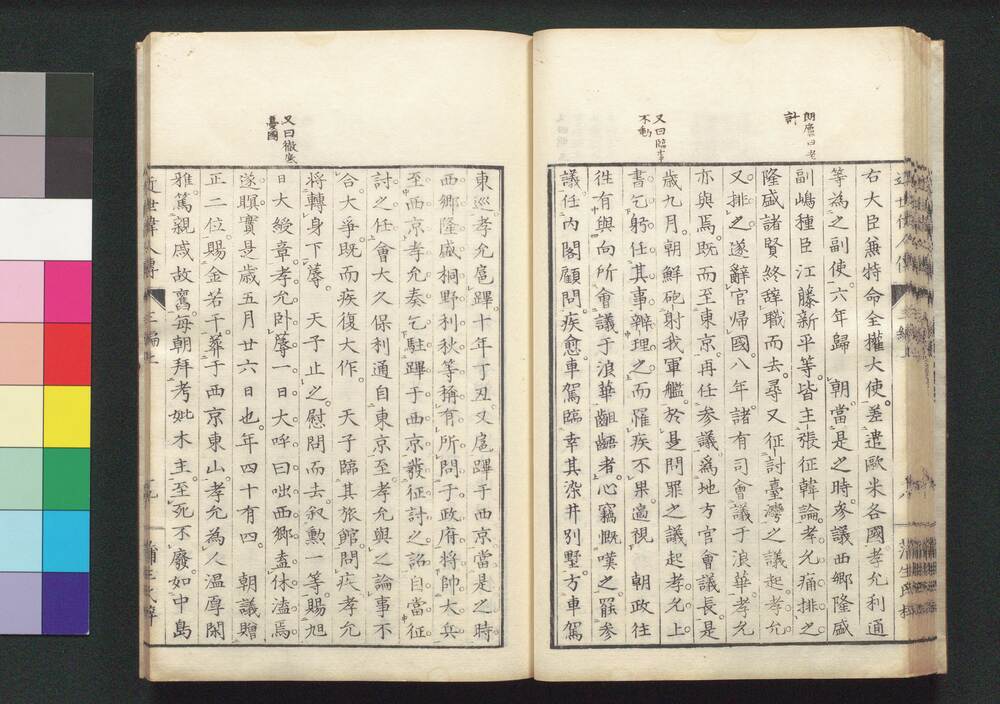 又曰臨事
不動
右大臣兼特命全權大使差遣歐米各國孝允利通
等為之副使六年歸　朝當是之時參議西鄉隆盛
副嶋種臣江藤新平等皆主張征韓論孝允痛排之
隆盛諸賢終辞職而去尋又征討臺灣之議起孝允
又排之遂辭官帰國八年諸有司會議于浪華孝允
亦與焉既而至東京再任參議為地方官會議長是
歲九月朝鮮砲射我軍艦於是問罪之議起孝允上
書乞躬任其事辨理之而罹疾不果適視　朝政往
徃有與向所會議于浪華齟齬者心竊慨嘆之罷參
議任內閣顧問疾愈車駕臨幸其染井別墅方車駕
又曰徹底
憂國
東巡孝允扈蹕十年丁丑又扈蹕于西京當是之時
西鄉隆盛桐野利秋等稱有所問于政府將帥大兵
至西京孝允奏乞駐蹕于西京發征討之詔自當征
討之任會大久保利通自東京至孝允與之論事不
合大爭既而疾復大作　天子臨其旅館問疾孝允
將轉身下蓐　天子止之慰問而去叙勲一等賜旭
日大綬章孝允卧蓐一日大呼曰咄西鄉盍休溘焉
遂瞑實是歲五月廿六日也年四十有四　朝議贈
正二位賜金若干葬于西京東山孝允為人温厚閑
雅篤親戚故舊每朝拜考妣木主至死不廢如中島
近世偉人傳